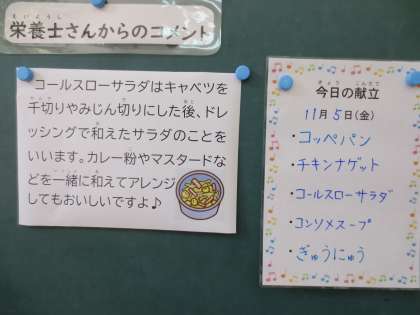 栄養士さんからのコメント
コールスローサラダはキャベツを
千切りやみじん切りにした後、ドレ
ッシングで和えたサラダのことを
いいます。カレー粉やマスタードな
どを一緒に和えてアレンジ
してもおいしいですよ♪
今日の献立
11月5日(金)
・コッペパン
・チキンナゲット
・コールスローサラダ
・コンソメスープ
・ぎゅうにゅう